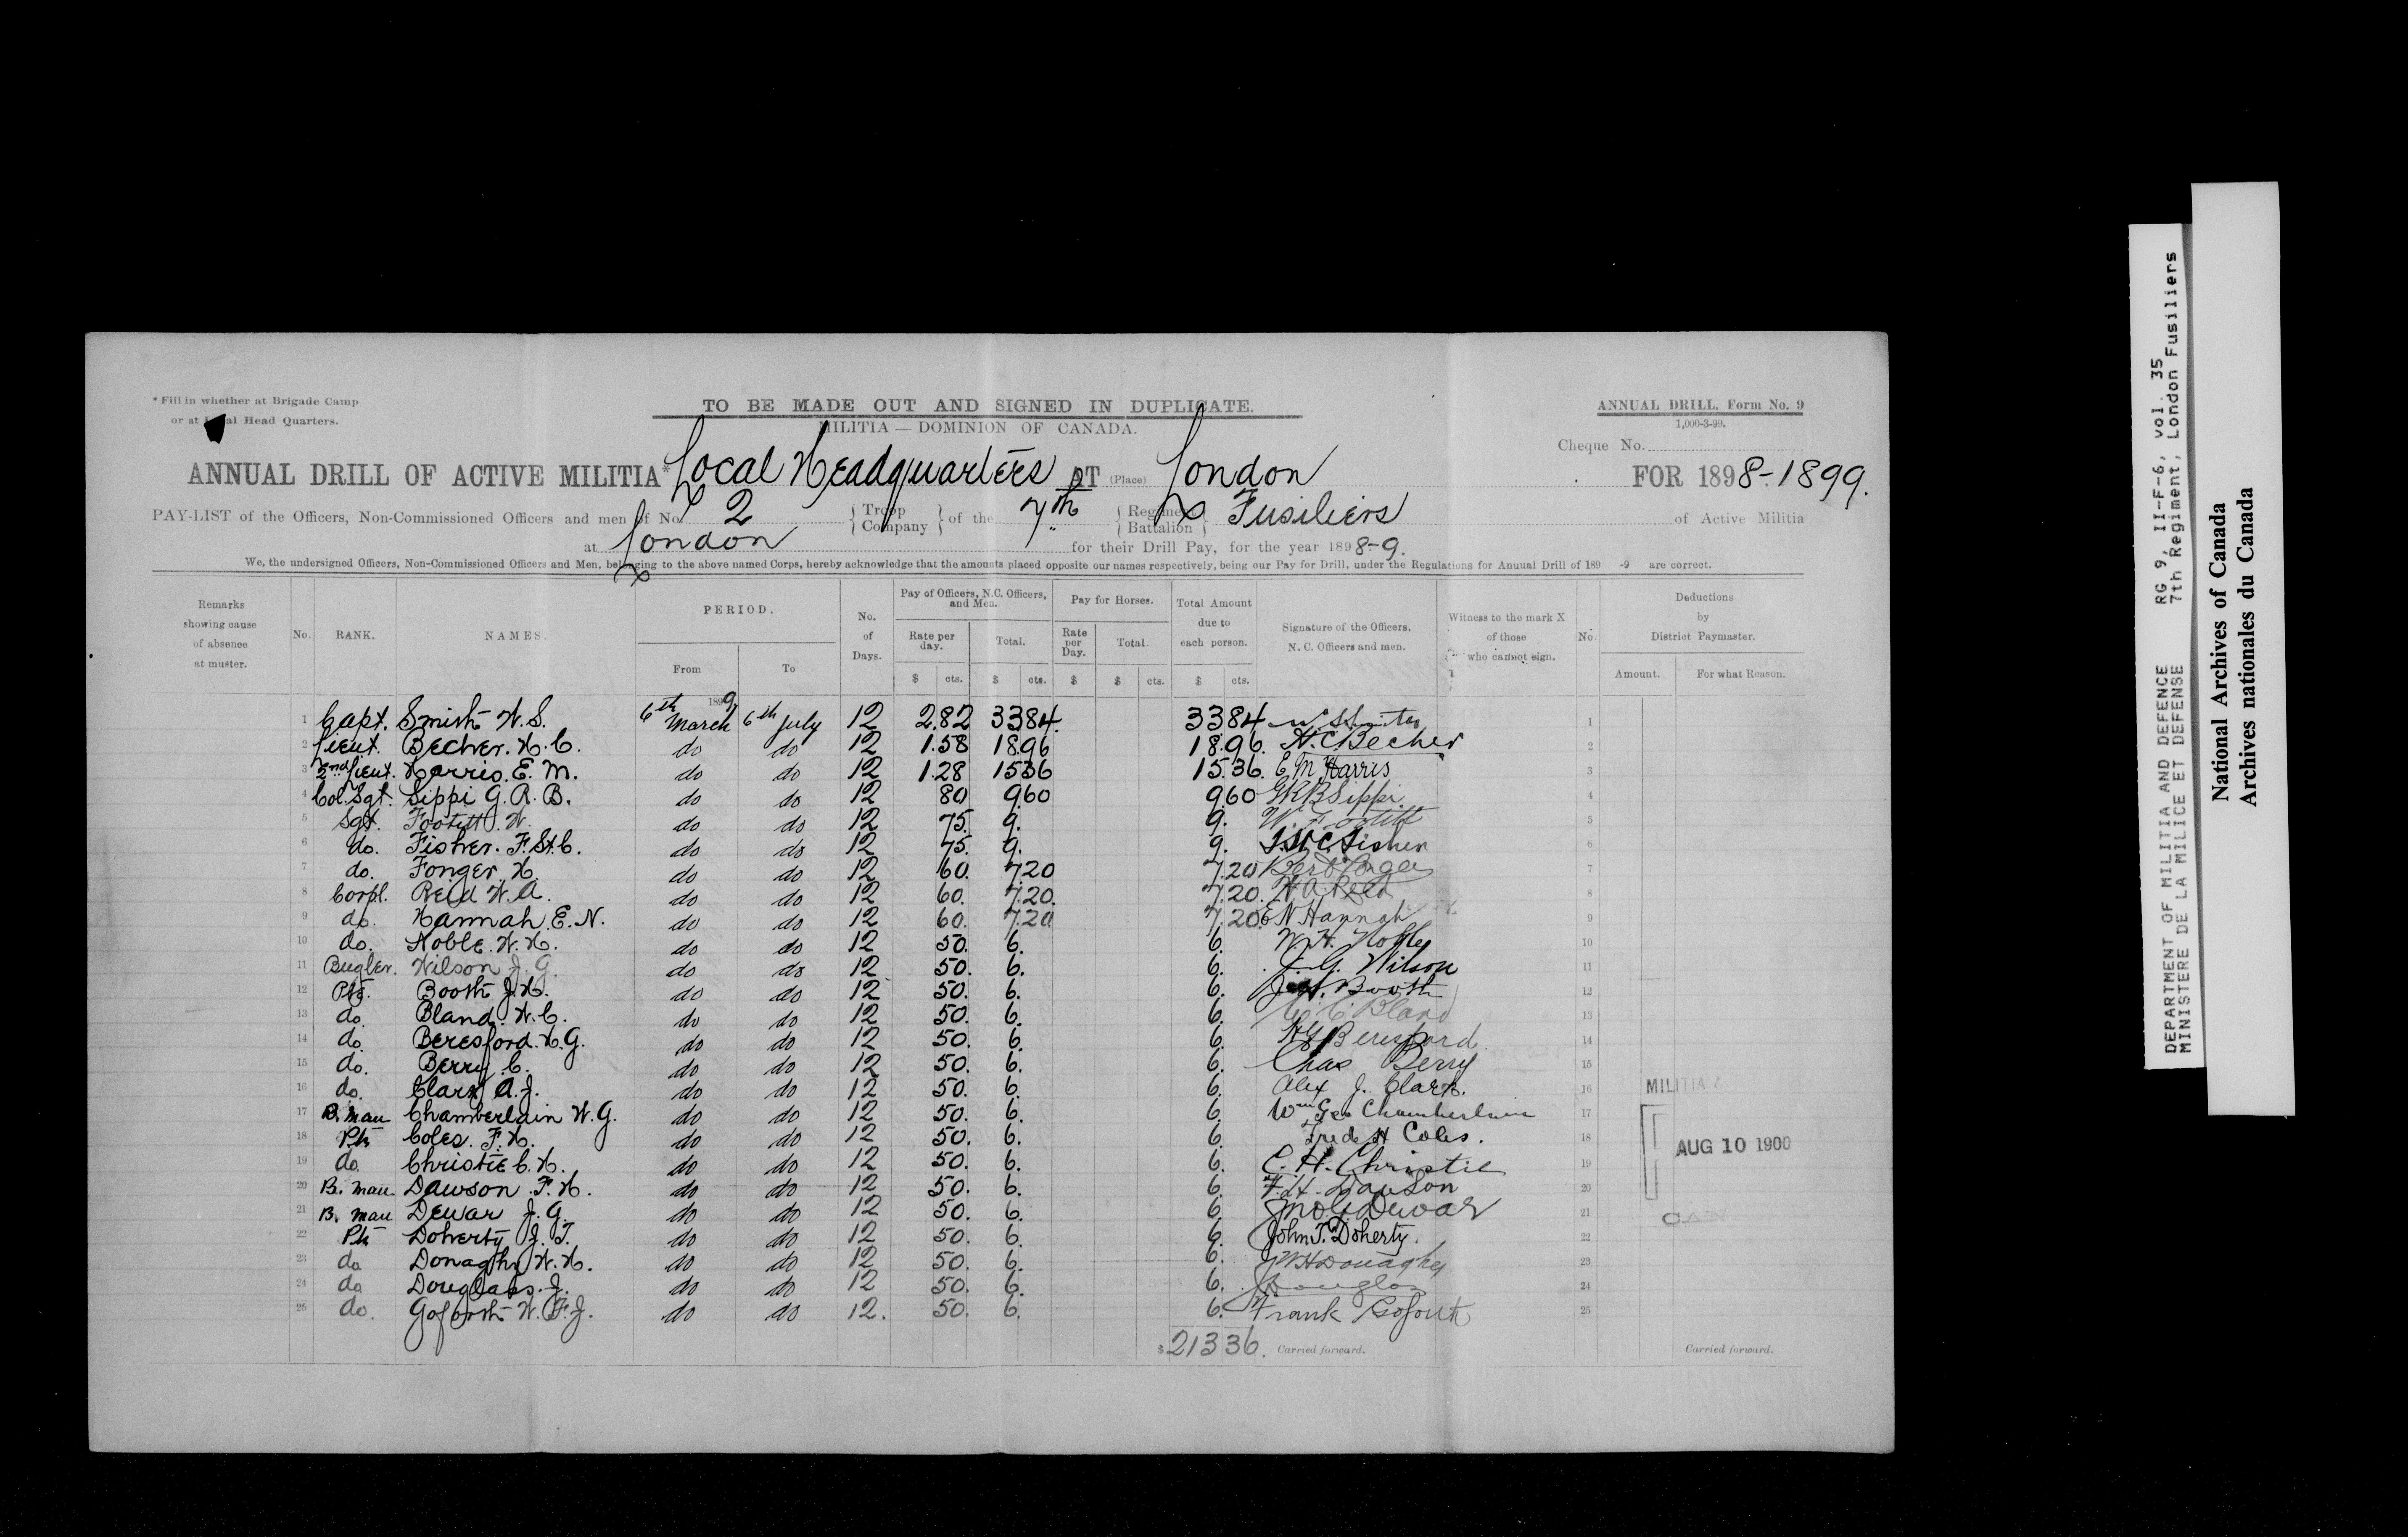 * Fill in whether at Brigade Camp
or at Local Head Quarters.
TO BE MADE OUT AND SIGNED IN DUPLICATE.
MILITIA — DOMINION OF CANADA.
ANNUAL DRILL, Form No. 9
1,000-3-99.
Cheque No.
ANNUAL DRILL OF ACTIVE MILITIA* Local Headquarters AT (Place) London FOR 1898-1899.
PAY-LIST of the Officers, Non-Commissioned Officers and men of No. 2 { Troop Company } of the 7th { Regiment Battalion } Fusiliers of Active Militia
at London for their Drill Pay, for the year 1898-9.
We, the undersigned Officers, Non-Commissioned Officers and Men, belonging to the above named Corps, hereby acknowledge that the amounts placed opposite our names respectively, being our Pay for Drill, under the Regulations for Annual Drill of 189 -9 are correct.
Remarks showing cause of absence at muster. No. RANK. NAMES. PERIOD. From To No. of Days. Pay of Officers, N.C. Officers, and Men. Rate per day. $ cts. Total. $ cts. Pay for Horses. Rate per Day. $ Total. $ cts. Total Amount due to each person. $ cts. Signature of the Officers, N. C. Officers and men. Witness to the mark X of those who cannot sign. No. Deductions by District Paymaster. Amount. For what Reason.
1899
1 Capt. Smith W. S. 6th March 6th July 12 2.82 3384 3384 1
2 Lieut. Becher. H. C. do do 12 1.58 1896 18.96. H. C. Becher 2
3 2nd Lieut. Harris. E. M. do do 12 1.28 1536 15.36. E. M. Harris 3
4 Col. Sgt. Sippi G. R. B. do do 12 80 960 960 G R B Sippi 4
5 Sgt. Footitt. W. do do 12 75. 9. 9. W. Footitt 5
6 do. Fisher. F. St. C. do do 12 75. 9. 9. Fisher 6
7 do. Fonger. H. do do 12 60. 720 7.20 Bert Fonger 7
8 Corpl. Reid W. A. do do 12 60. 7.20. 7.20. W. A. Reid 8
9 do. Hannah E. N. do do 12 60. 7.20 7.20 E N Hannah 9
10 do. Noble. W. H. do do 12 50. 6. 6. W. H. Noble 10
11 Bugler. Wilson J. G. do do 12 50. 6. 6. J. G. Wilson 11
12 Pte. Booth J. H. do do 12 50. 6. 6. J. H. Booth 12
13 do. Bland. W. C. do do 12 50. 6. 6. Bland 13
14 do. Beresford. H. G. do do 12 50. 6. 6. H G Beresford 14
15 do. Berry. C. do do 12 50. 6. 6. Chas Berry 15
16 do. Clark A. J. do do 12 50. 6. 6. Alex J. Clark. 16
17 B. Man Chamberlain W. G. do do 12 50. 6. 6. Wm Geo Chamberlain 17
18 Pte Coles. F. H. do do 12 50. 6. 6. Fred H Coles. 18
19 do. Christie C. H. do do 12 50. 6. 6. C. H. Christie 19
20 B. Man. Dawson F. H. do do 12 50. 6. 6. F. H. Dawson 20
21 B. Man Dewar J. G. do do 12 50. 6. 6. Jno G Dewar 21
22 Pte Doherty J. T. do do 12 50. 6. 6. John T. Doherty. 22
23 do Donaghy W. H. do do 12 50. 6. 6. W H Donaghy 23
24 do Douglass. J. do do 12 50. 6. 6. Douglas 24
25 do. Goforth W. F. J. do do 12. 50. 6. 6. Frank Goforth 25
$ 21336. Carried forward. Carried forward.
MILITIA &
AUG 10 1900
CAN
DEPARTMENT OF MILITIA AND DEFENCE RG 9, II-F-6, vol. 35
MINISTERE DE LA MILICE ET DEFENSE 7th Regiment, London Fusiliers
National Archives of Canada
Archives nationales du Canada